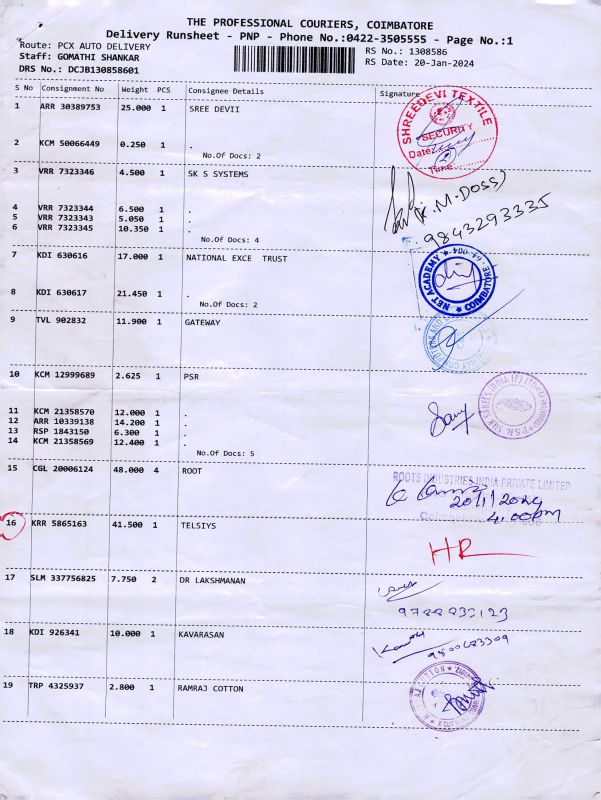 THE PROFESSIONAL COURIERS, COIMBATORE
Delivery Runsheet - PNP - Phone No.:0422-3505555 - Page No.:1
Route: PCX AUTO DELIVERY
RS No.: 1308586
Staff: GOMATHI SHANKAR
RS Date: 20-Jan-2024
DRS No.: DCJB130858601
S No Consignment No Weight PCS Consignee Details Signature
1 ARR 30389753 25.000 1 SREE DEVII
SHREEDEVI TEXTILE
SECURITY
Date:
Time
2 KCM 50066449 0.250 1 .
No.Of Docs: 2
3 VRR 7323346 4.500 1 SK S SYSTEMS
M.DOSS
9843293335
4 VRR 7323344 6.500 1 .
5 VRR 7323343 5.050 1 .
6 VRR 7323345 10.350 1 .
No.Of Docs: 4
7 KDI 630616 17.000 1 NATIONAL EXCE TRUST
NET ACADEMY
COIMBATORE
8 KDI 630617 21.450 1 .
No.Of Docs: 2
9 TVL 902832 11.900 1 GATEWAY
10 KCM 12999689 2.625 1 PSR
11 KCM 21358570 12.000 1 .
12 ARR 10339138 14.200 1 .
13 RSP 1843150 6.300 1 .
14 KCM 21358569 12.400 1 .
No.Of Docs: 5
15 CGL 20006124 48.000 4 ROOT
ROOTS INDUSTRIES INDIA PRIVATE LIMITED
20/1/2024
4.00pm
16 KRR 5865163 41.500 1 TELSIYS
HR
17 SLM 337756825 7.750 2 DR LAKSHMANAN
18 KDI 926341 10.000 1 KAVARASAN
19 TRP 4325937 2.800 1 RAMRAJ COTTON